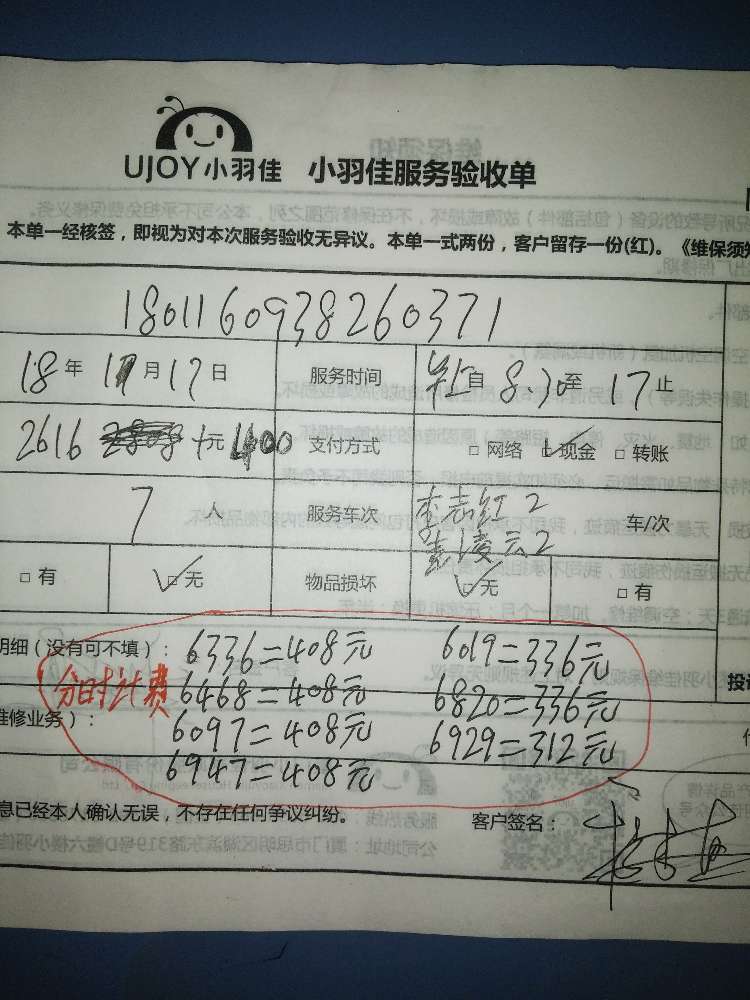 UJOY小羽佳 小羽佳服务验收单
本单一经核签，即视为对本次服务验收无异议。本单一式两份，客户留存一份(红)。《维保须知
1801160938260371
18年 11月17日 服务时间 自 8.30 至 17 止
2616 +元 1400 支付方式 □网络 □现金 □转账
7 人 服务车次 李志红2 车/次
凌云2
□有 □无 物品损坏 □无 □有
明细（没有可不填）： 6336=408元 6019=336元
分时计费 6468=408元 6820=336元
维修业务）： 6097=408元 6929=312元
6947=408元
息已经本人确认无误，不存在任何争议纠纷。 客户签名：